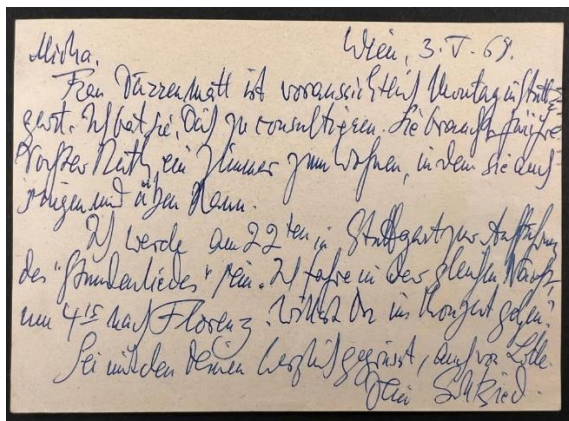 Micha. Wien, 3. V. 69.
Frau Dürrenmatt ist voraussichtlich Montag in Stutt-
gart. Ich bat sie, Dich zu consultieren. Sie braucht für ihre
Tochter Ruth ein Zimmer zum Wohnen, in dem sie auch
singen und üben kann.
Ich werde am 22ten in Stuttgart zur Aufführung
des "Stundenliedes" sein. Ich fahre in der gleichen Nacht
um 4 15 nach Florenz. Willst Du ins Konzert gehen?
Sei mit den Deinen herzlich gegrüsst, auch von Lotte.
Dein Gottfried.